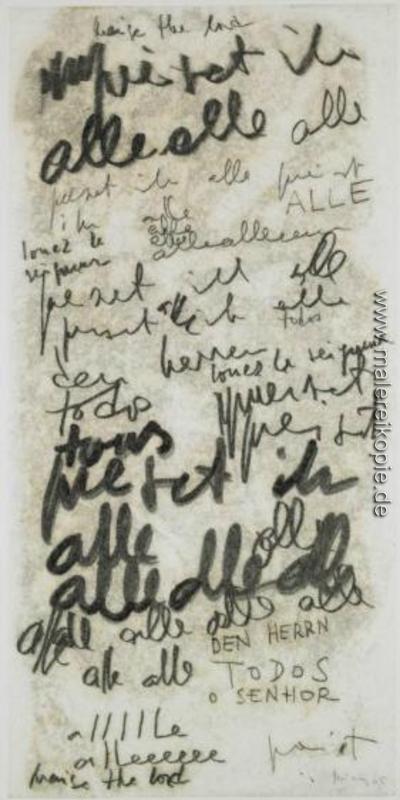 praise the lord
preiset ihn
alle alle alle
preiset ihn alle preiset
ihn alle ALLE
alle
alle
louez le alleallee
seigneur
preiset ihn alle
preiset alle ihn alle
todos
den herren louez le seigneur
todos preiset
tous preiset
preiset ihn
alle alle
alle alle alle
alle alle alle alle
DEN HERRN
alle alle
TODOS
O SENHOR
allllle
alleeeeee preiset
praise the lord
www.malereikopie.de